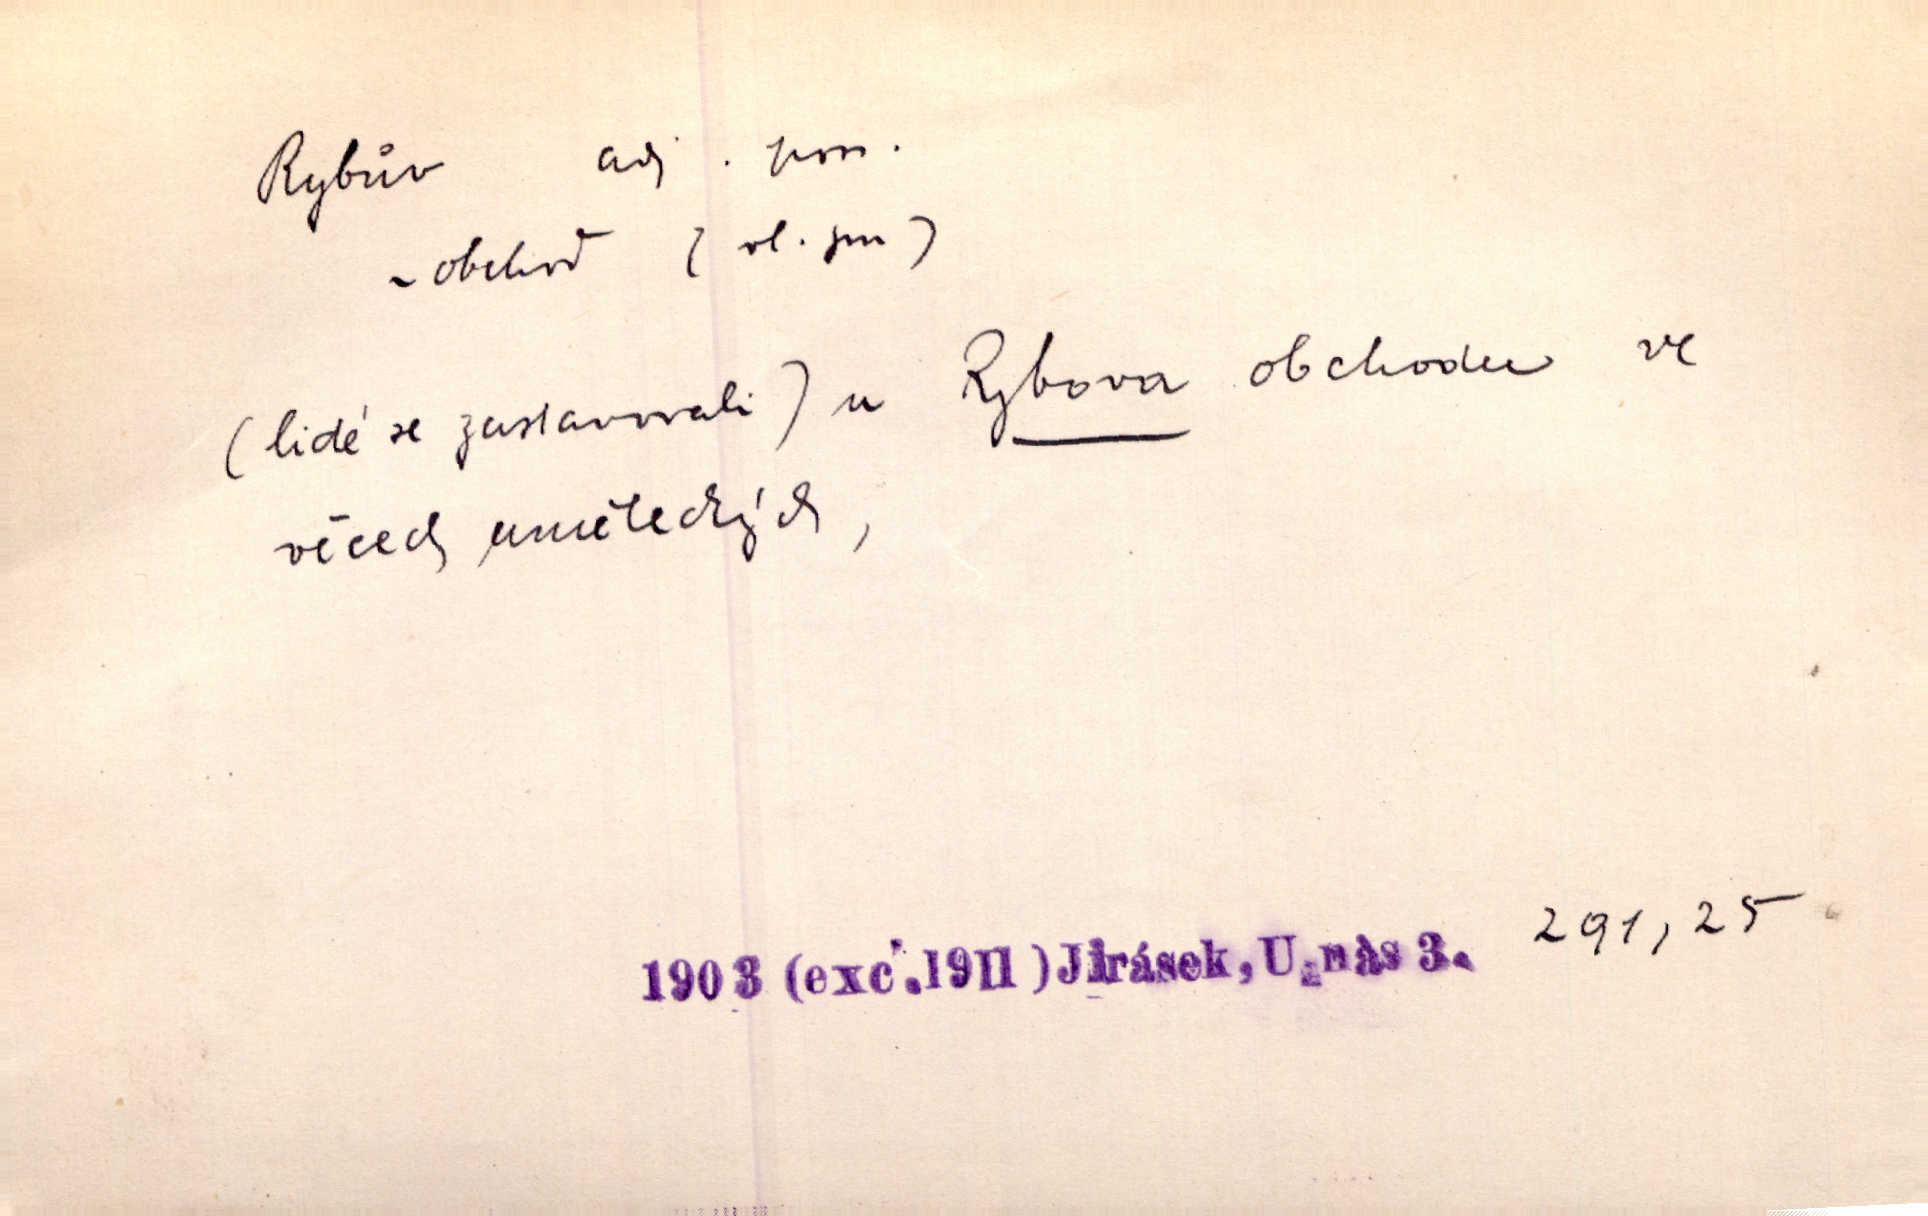 Rybův adj. poss.
~ obchod (vl. jm)
(lidé se zastavovali) u Rybova obchodu ve
věcech uměleckých,
1903 (exc. 1911) Jirásek, U nás 3. 291,25